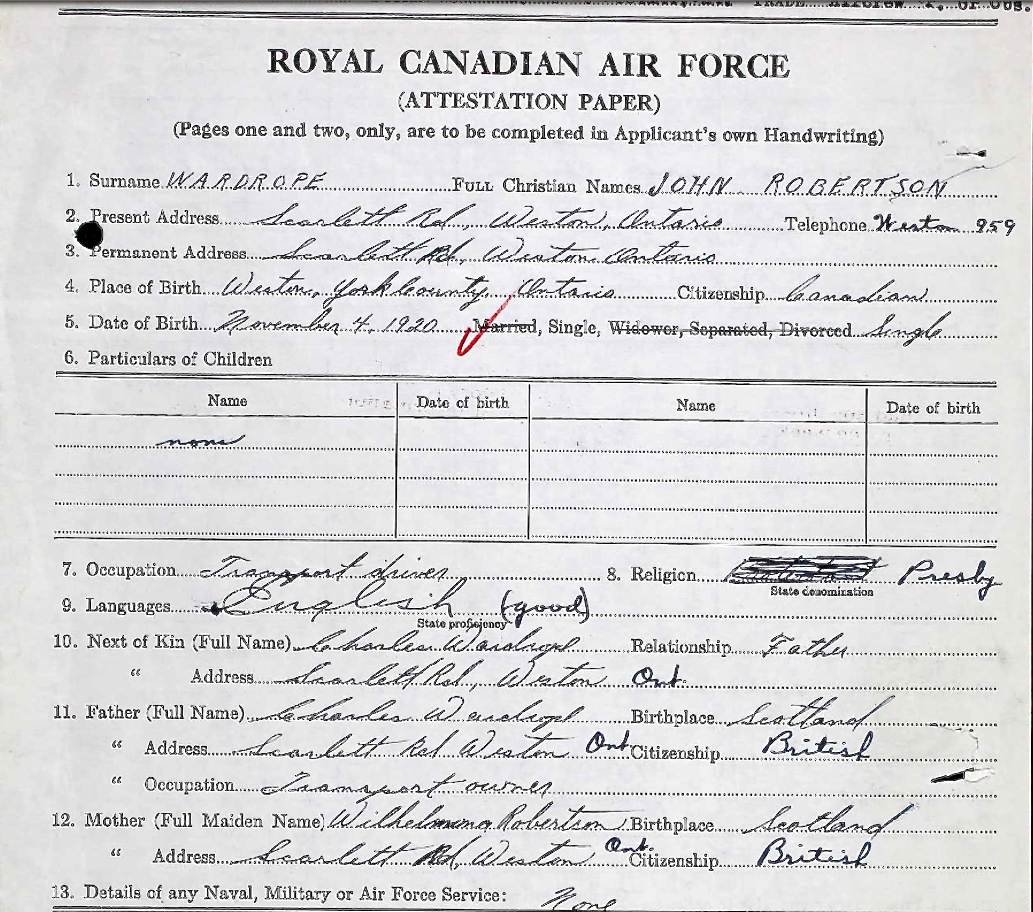 TRADE
ROYAL CANADIAN AIR FORCE
(ATTESTATION PAPER)
(Pages one and two, only, are to be completed in Applicant's own Handwriting)
1. Surname WARDROPE FULL Christian Names JOHN ROBERTSON
2. Present Address Scarlett Rd, Weston, Ontario Telephone Weston 959
3. Permanent Address Scarlett Rd, Weston Ontario
4. Place of Birth Weston, York County, Ontario Citizenship Canadian
5. Date of Birth November 4, 1920 Married, Single, Widower, Separated, Divorced Single
6. Particulars of Children
Name Date of birth Name Date of birth
none
7. Occupation Transport driver 8. Religion Presby
State denomination
9. Languages English (good)
State proficiency
10. Next of Kin (Full Name) Charles Wardrope Relationship Father
" Address Scarlett Rd, Weston Ont.
11. Father (Full Name) Charles Wardrope Birthplace Scotland
" Address Scarlett Rd Weston Ont Citizenship British
" Occupation Transport owner
12. Mother (Full Maiden Name) Wilhelmina Robertson Birthplace Scotland
" Address Scarlett Rd, Weston Ont. Citizenship British
13. Details of any Naval, Military or Air Force Service: None